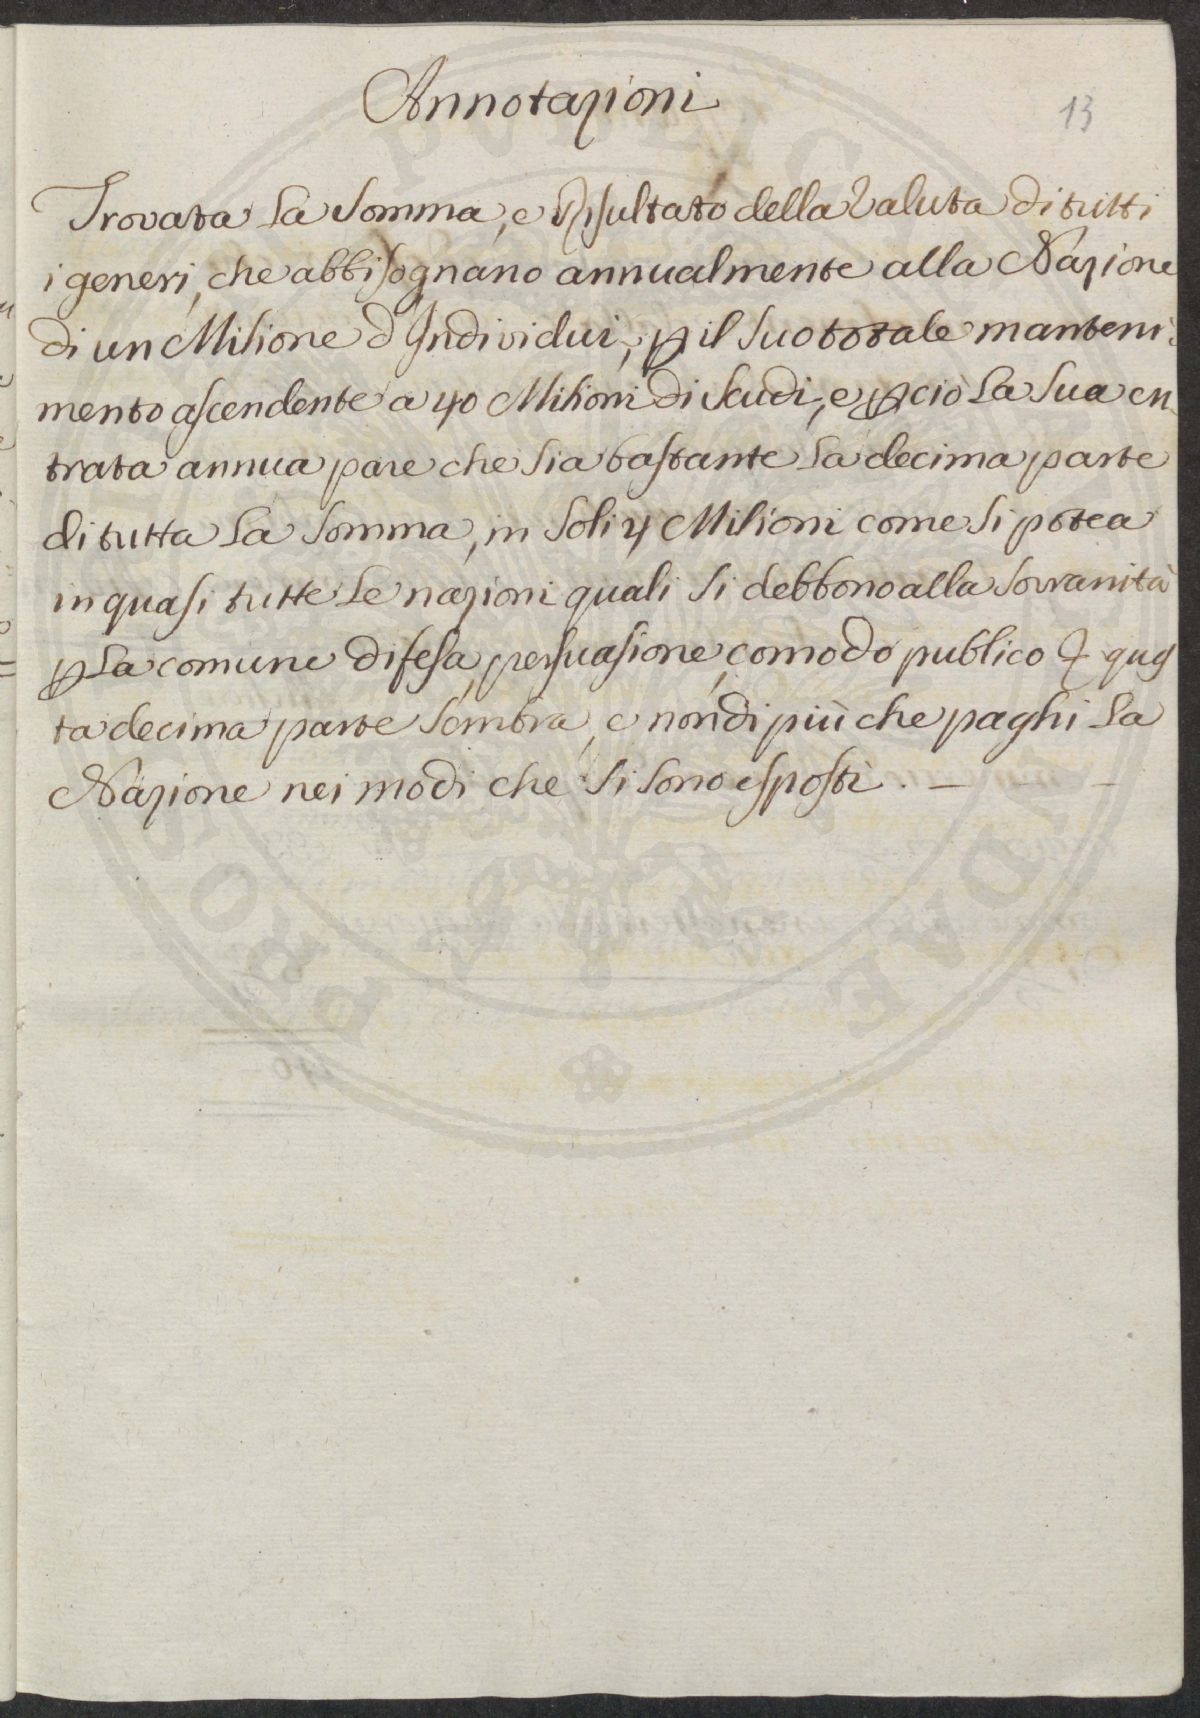 Annotazioni
13
Trovata la Somma, e Risultato della Valuta di tutti
i generi, che abbisognano annualmente alla Nazione
di un Milione d'Individui, p il suo totale manteni:
mento ascendente a 40 Milioni di Scudi, e pciò la sua en
trata annua pare che sia bastante la decima parte
di tutta la somma, in soli 4 Milioni come si potea
in quasi tutte le nazioni quali si debbono alla sovranità
p la comune difesa, persuasione, comodo publico &
ta decima parte sembra, e non di più che paghi la
Nazione nei modi che si sono esposti. — —